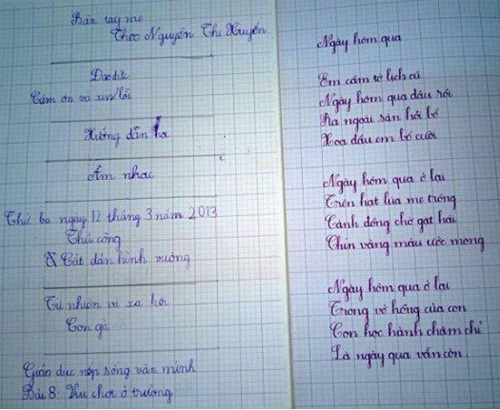 Bàn tay mẹ
Theo Nguyễn Thị Xuyến
Đạo đức
Cảm ơn và xin lỗi
Hướng dẫn
Âm nhạc
Thứ ba ngày 12 tháng 3 năm 2013
Thủ công
Cắt dán hình vuông
Tự nhiên và xã hội
Con gà
Giáo dục nếp sống văn minh
Bài 8: Vui chơi ở trường
Ngày hôm qua
Em cầm tờ lịch cũ
Ngày hôm qua đâu rồi
Ra ngoài sân hỏi bố
Xoa đầu em bố cười
Ngày hôm qua ở lại
Trên hạt lúa mẹ trồng
Cánh đồng chờ gặt hái
Chín vàng màu ước mong
Ngày hôm qua ở lại
Trong vở hồng của con
Con học hành chăm chỉ
Là ngày qua vẫn còn.